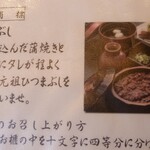 ぶし
込んだ蒲焼きと
にタレが程よく
元祖ひつまぶし
いませ。
のお召し上がり方
お櫃の中を十文字に四等分に分け